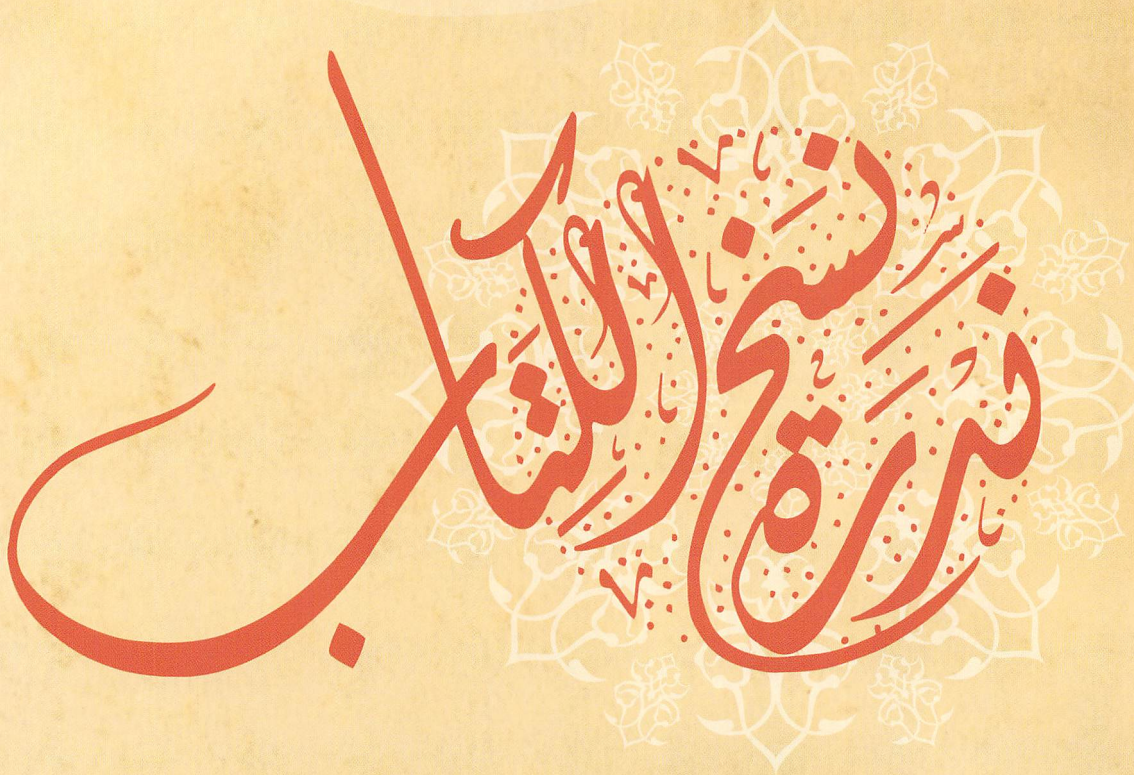 نَدْرَة نَسخ الكِتَاب